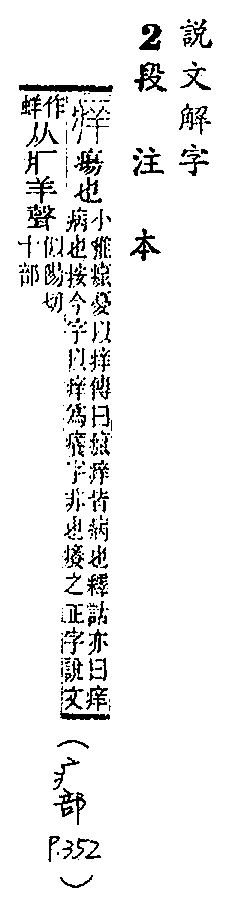 說文解字
2段注本
痒瘍也小雅癙憂以痒傳曰癙痒皆病也釋詁亦曰痒
病也按今字以痒爲癢字非也癢之正字說文
作蛘从疒羊聲似陽切十部
(疒部 P.352)